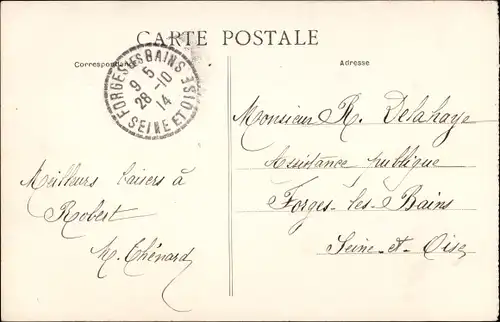 CARTE POSTALE
Correspondance
Adresse
FORGES-LES-BAINS
9 5
28 -10
14
SEINE ET OISE
Monsieur R. Delahaye
Assistance publique
Forges-les-Bains
Seine-et-Oise
Meilleurs baisers à
Robert
M. Thénard